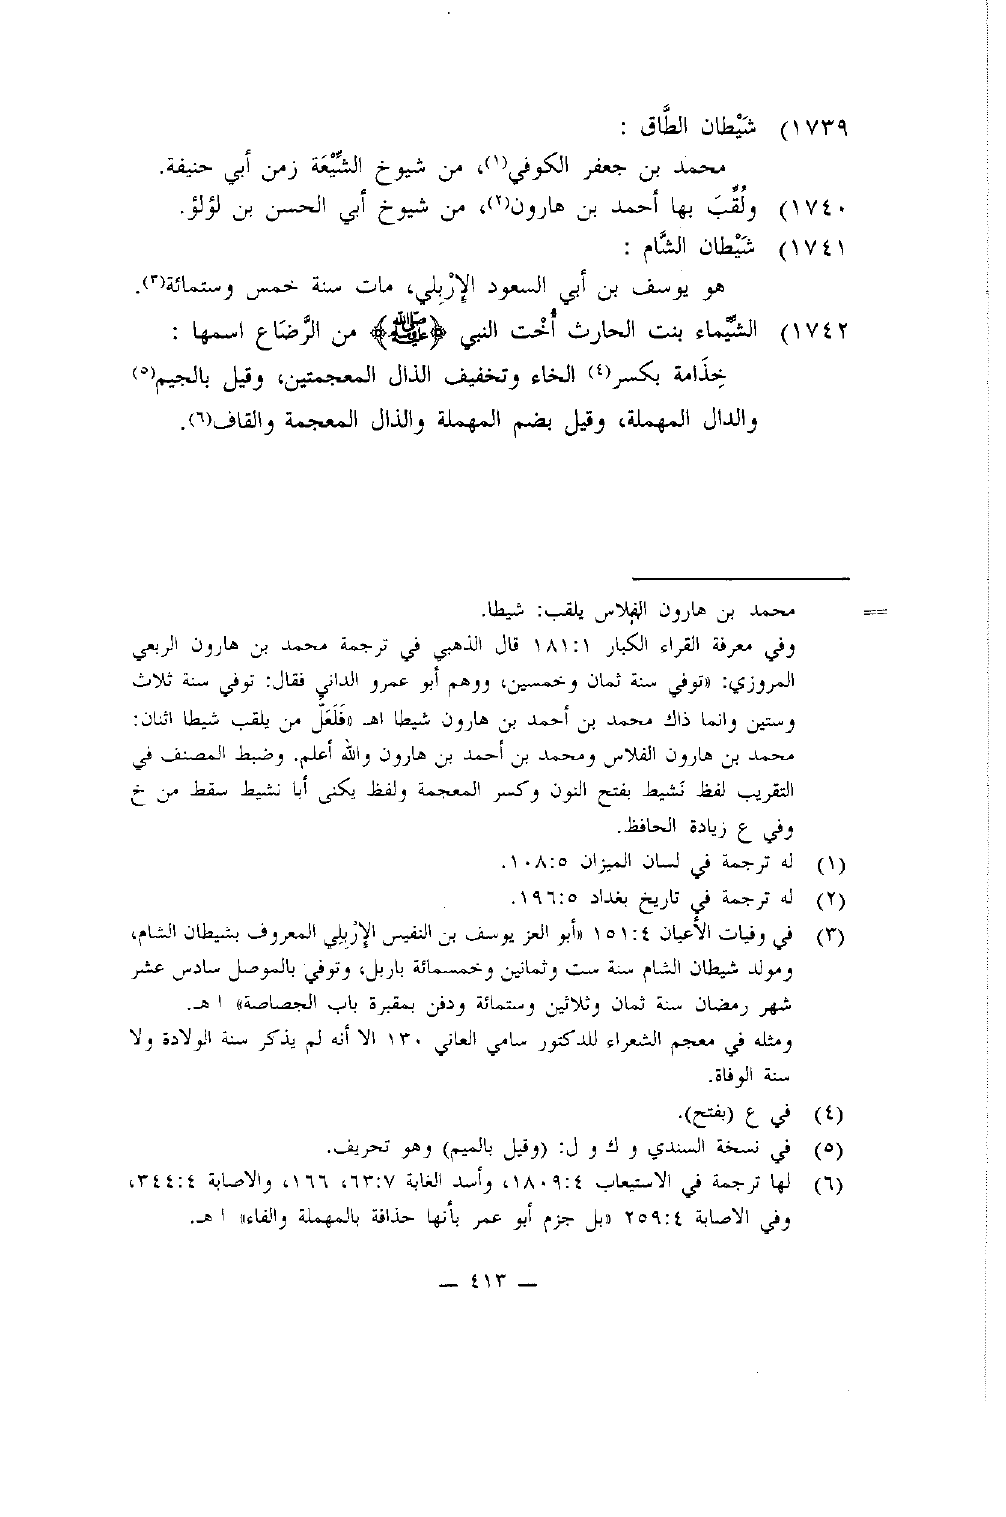 ١٧٣٩) شَيْطان الطَّاق :
محمد بن جعفر الكوفي(١)، من شيوخ الشِّيْعَة زمن أبي حنيفة.
١٧٤٠) ولُقِّبَ بها أحمد بن هارون(٢)، من شيوخ أبي الحسن بن لؤلؤ.
١٧٤١) شَيْطان الشَّام :
هو يوسف بن أبي السعود الإرْبِلي، مات سنة خمس وستمائة(٣).
١٧٤٢) الشَّيْماء بنت الحارث أُخْت النبي ﴿ﷺ﴾ من الرَّضَاع اسمها :
خِذَامة بكسر(٤) الخاء وتخفيف الذال المعجمتين، وقيل بالجيم(٥)
والدال المهملة، وقيل بضم المهملة والذال المعجمة والقاف(٦).
== محمد بن هارون الفلاس يلقب: شيطا.
وفي معرفة القراء الكبار ١٨١:١ قال الذهبي في ترجمة محمد بن هارون الربعي
المروزي: «توفي سنة ثمان وخمسين، ووهم أبو عمرو الداني فقال: توفي سنة ثلاث
وستين وانما ذاك محمد بن أحمد بن هارون شيطا اهـ «فَلَعَلَّ من يلقب شيطا اثنان:
محمد بن هارون الفلاس ومحمد بن أحمد بن هارون والله أعلم. وضبط المصنف في
التقريب لفظ نَشيط بفتح النون وكسر المعجمة ولفظ يكنى أبا نشيط سقط من خ
وفي ع زيادة الحافظ.
(١) له ترجمة في لسان الميزان ١٠٨:٥.
(٢) له ترجمة في تاريخ بغداد ١٩٦:٥.
(٣) في وفيات الأعيان ١٥١:٤ «أبو العز يوسف بن النفيس الإرْبِلي المعروف بشيطان الشام،
ومولد شيطان الشام سنة ست وثمانين وخمسمائة باربل، وتوفي بالموصل سادس عشر
شهر رمضان سنة ثمان وثلاثين وستمائة ودفن بمقبرة باب الجصاصة» ا هـ.
ومثله في معجم الشعراء للدكتور سامي العاني ١٣٠ الا أنه لم يذكر سنة الولادة ولا
سنة الوفاة.
(٤) في ع (بفتح).
(٥) في نسخة السندي و ك و ل: (وقيل بالميم) وهو تحريف.
(٦) لها ترجمة في الاستيعاب ١٨٠٩:٤، وأسد الغابة ٦٣:٧، ١٦٦، والاصابة ٣٤٤:٤،
وفي الاصابة ٢٥٩:٤ «بل جزم أبو عمر بأنها حذافة بالمهملة والفاء» ا هـ.
— ٤١٣ —